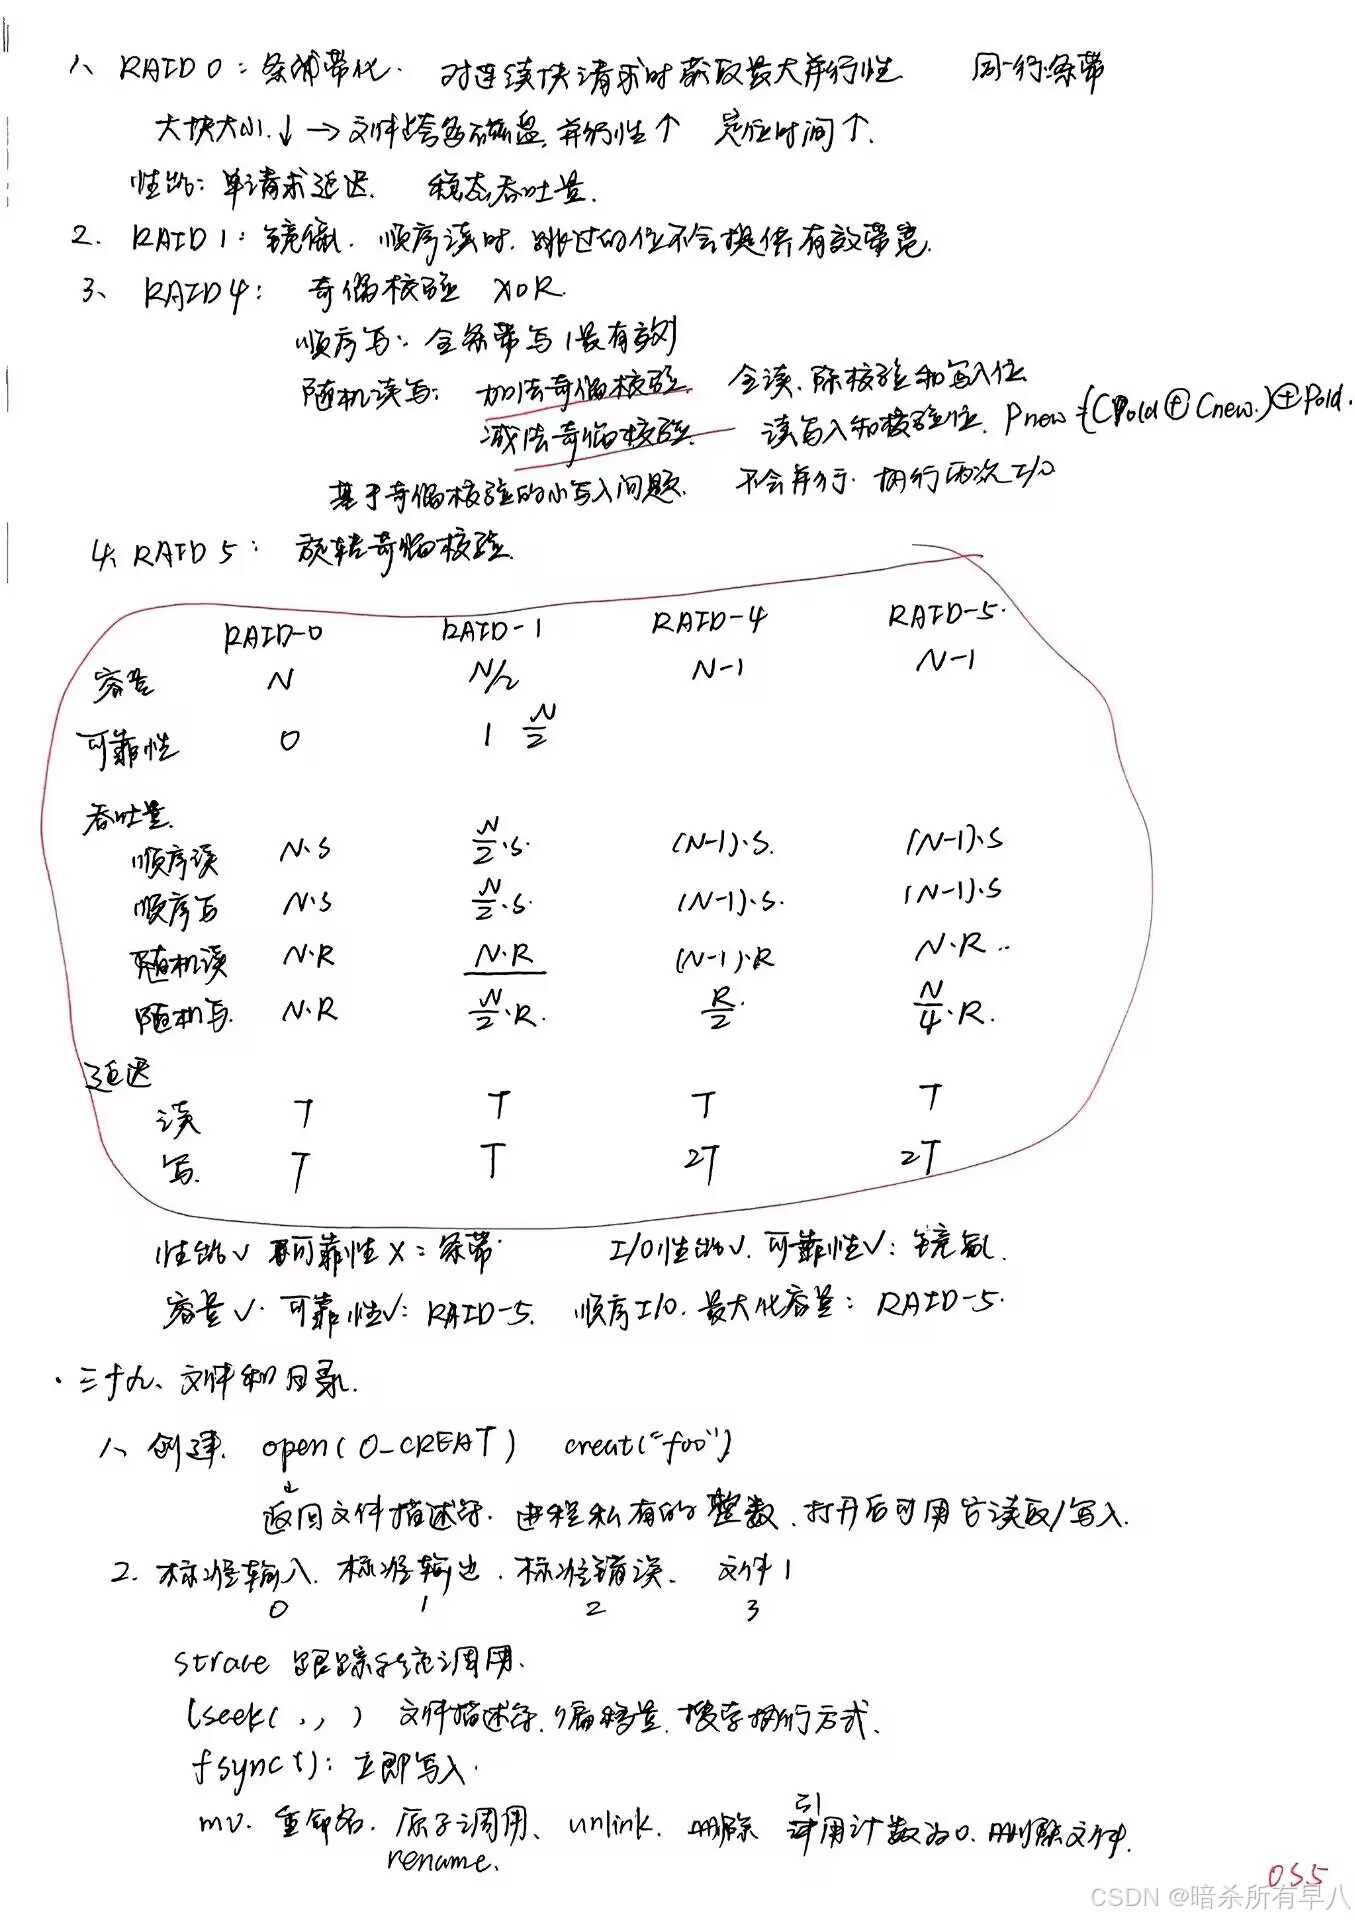 1、RAID 0：条带化. 对连续块请求时获取最大并行性 同一行:条带
大块大小↓→文件跨多个磁盘,并行性↑ 定位时间↑.
性能：单请求延迟. 稳态吞吐量.
2. RAID 1：镜像. 顺序读时,跳过的位不会提供有效带宽.
3、RAID 4： 奇偶校验 XOR.
顺序写：全条带写 最有效
随机读写：加法奇偶校验. 全读.除校验和写入位
减法奇偶校验. 读写入和校验位. Pnew=(Cold⊕Cnew.)⊕Pold.
基于奇偶校验的小写入问题. 不会并行.执行两次I/O
4、RAID 5： 旋转奇偶校验.
RAID-0 RAID-1 RAID-4 RAID-5.
容量 N N/2 N-1 N-1
可靠性 0 1 N/2
吞吐量.
顺序读 N·S N/2·S. (N-1)·S. (N-1)·S
顺序写 N·S N/2·S. (N-1)·S. (N-1)·S
随机读 N·R N·R (N-1)·R N·R..
随机写. N·R N/2·R. R/2. N/4·R.
延迟
读 T T T T
写. T T 2T 2T
性能√ 可靠性×：条带. I/O性能√.可靠性√：镜像.
容量√.可靠性√：RAID-5. 顺序I/O.最大化容量：RAID-5.
·三十九、文件和目录.
1、创建. open(O_CREAT) creat("foo")
↓
返回文件描述符. 进程私有的整数.打开后可用它读取/写入.
2. 标准输入.标准输出.标准错误. 文件1
0 1 2 3
strace 跟踪系统调用.
lseek( , , ) 文件描述符.偏移量.搜索执行方式.
fsync()：立即写入.
mv. 重命名. 原子调用、unlink. 删除 引用计数为0.删除文件.
rename.
OS5
CSDN @暗杀所有早八